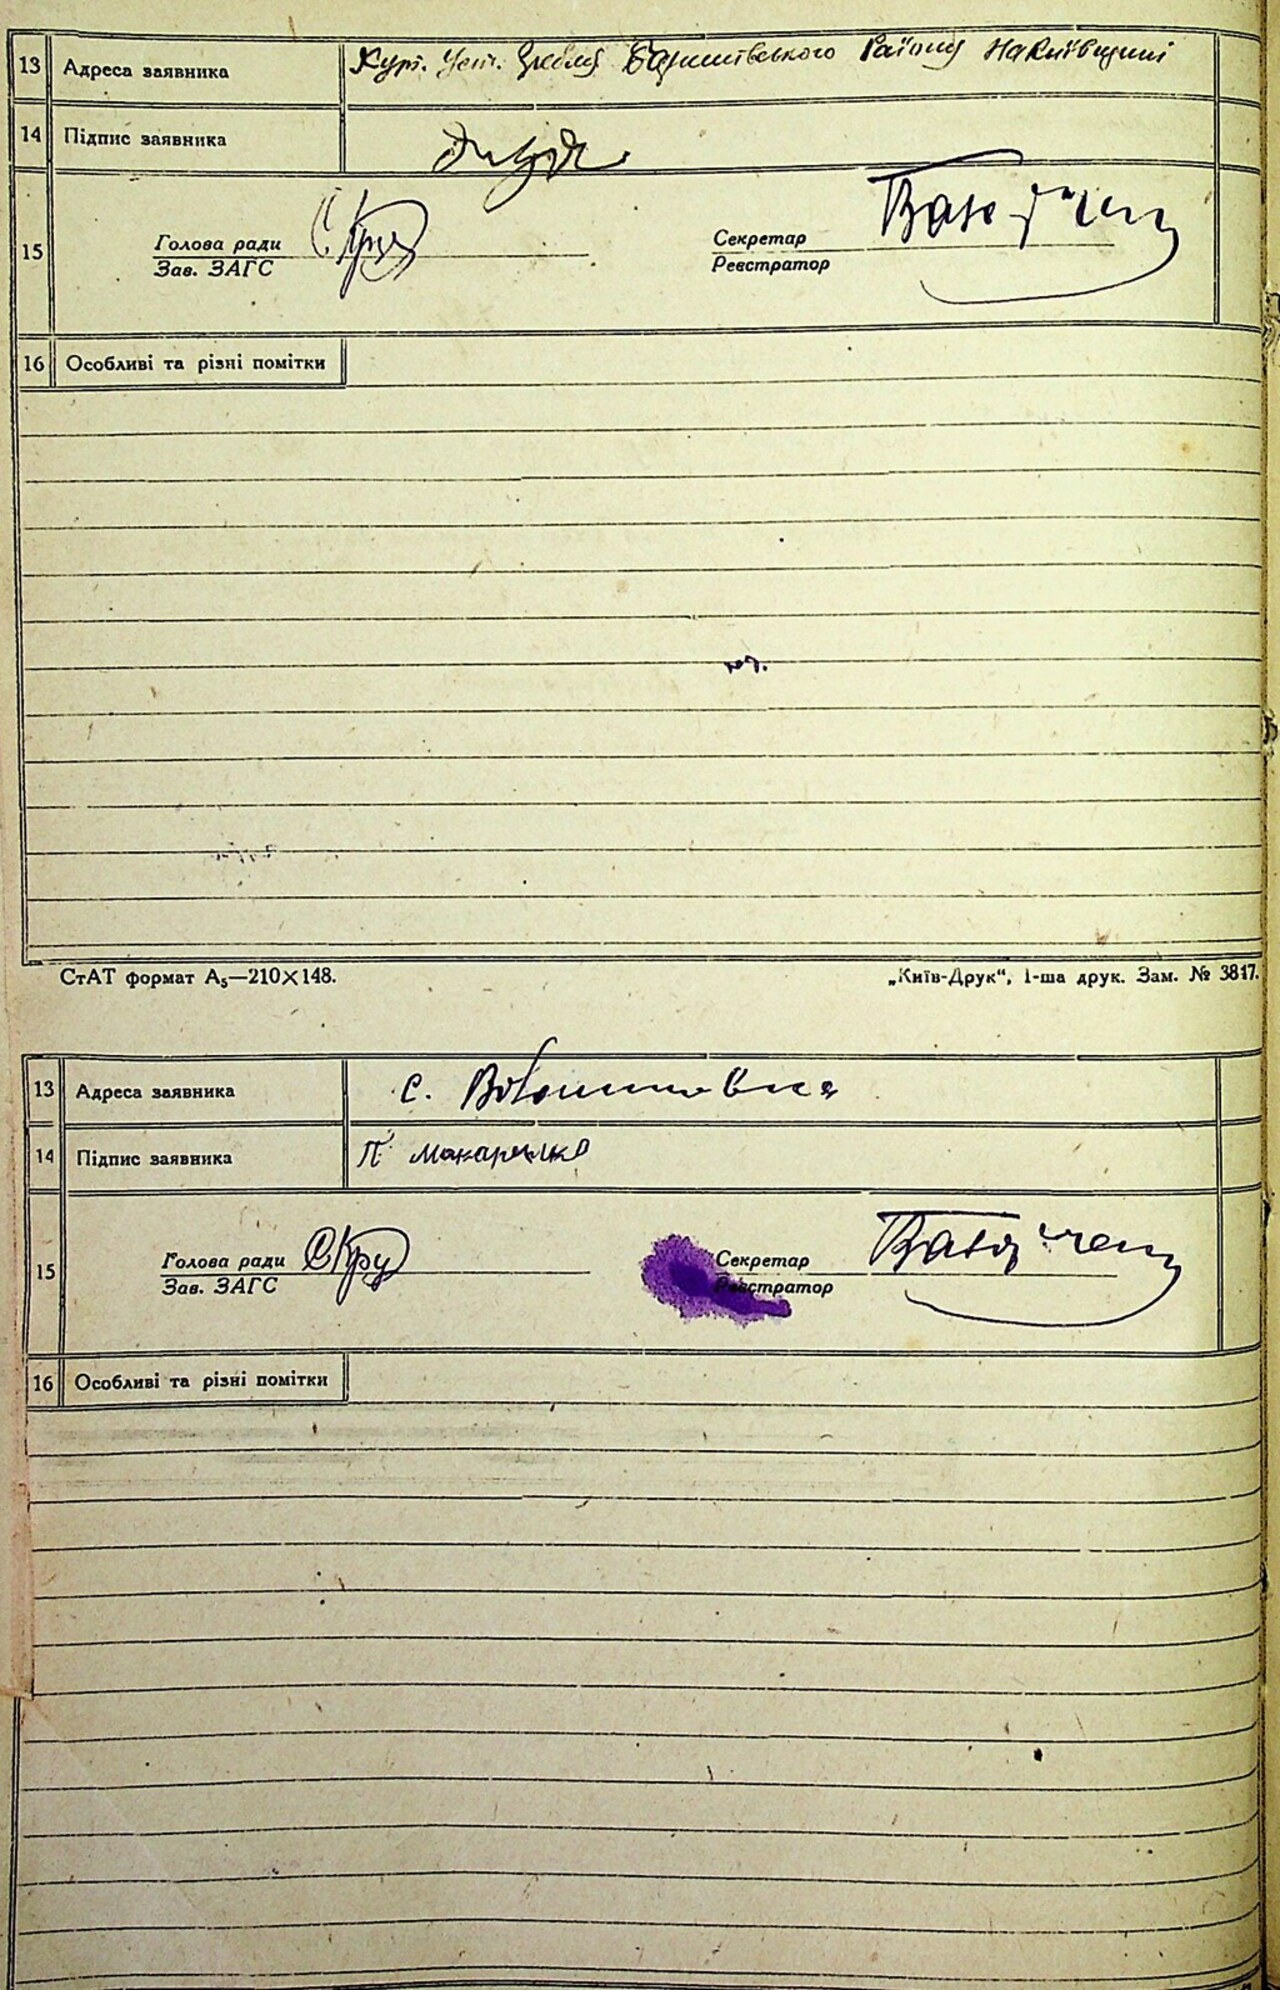 13 Адреса заявника Хут. Уст. Гребля Баришівського Району на Київщині
14 Підпис заявника
15 Голова ради Секретар
Зав. ЗАГС Реєстратор
16 Особливі та різні помітки
СтАТ формат А₅—210×148. „Київ-Друк“, 1-ша друк. Зам. № 3817.
13 Адреса заявника с. Волошинівка
14 Підпис заявника П Макаренко
15 Голова ради Секретар
Зав. ЗАГС Реєстратор
16 Особливі та різні помітки